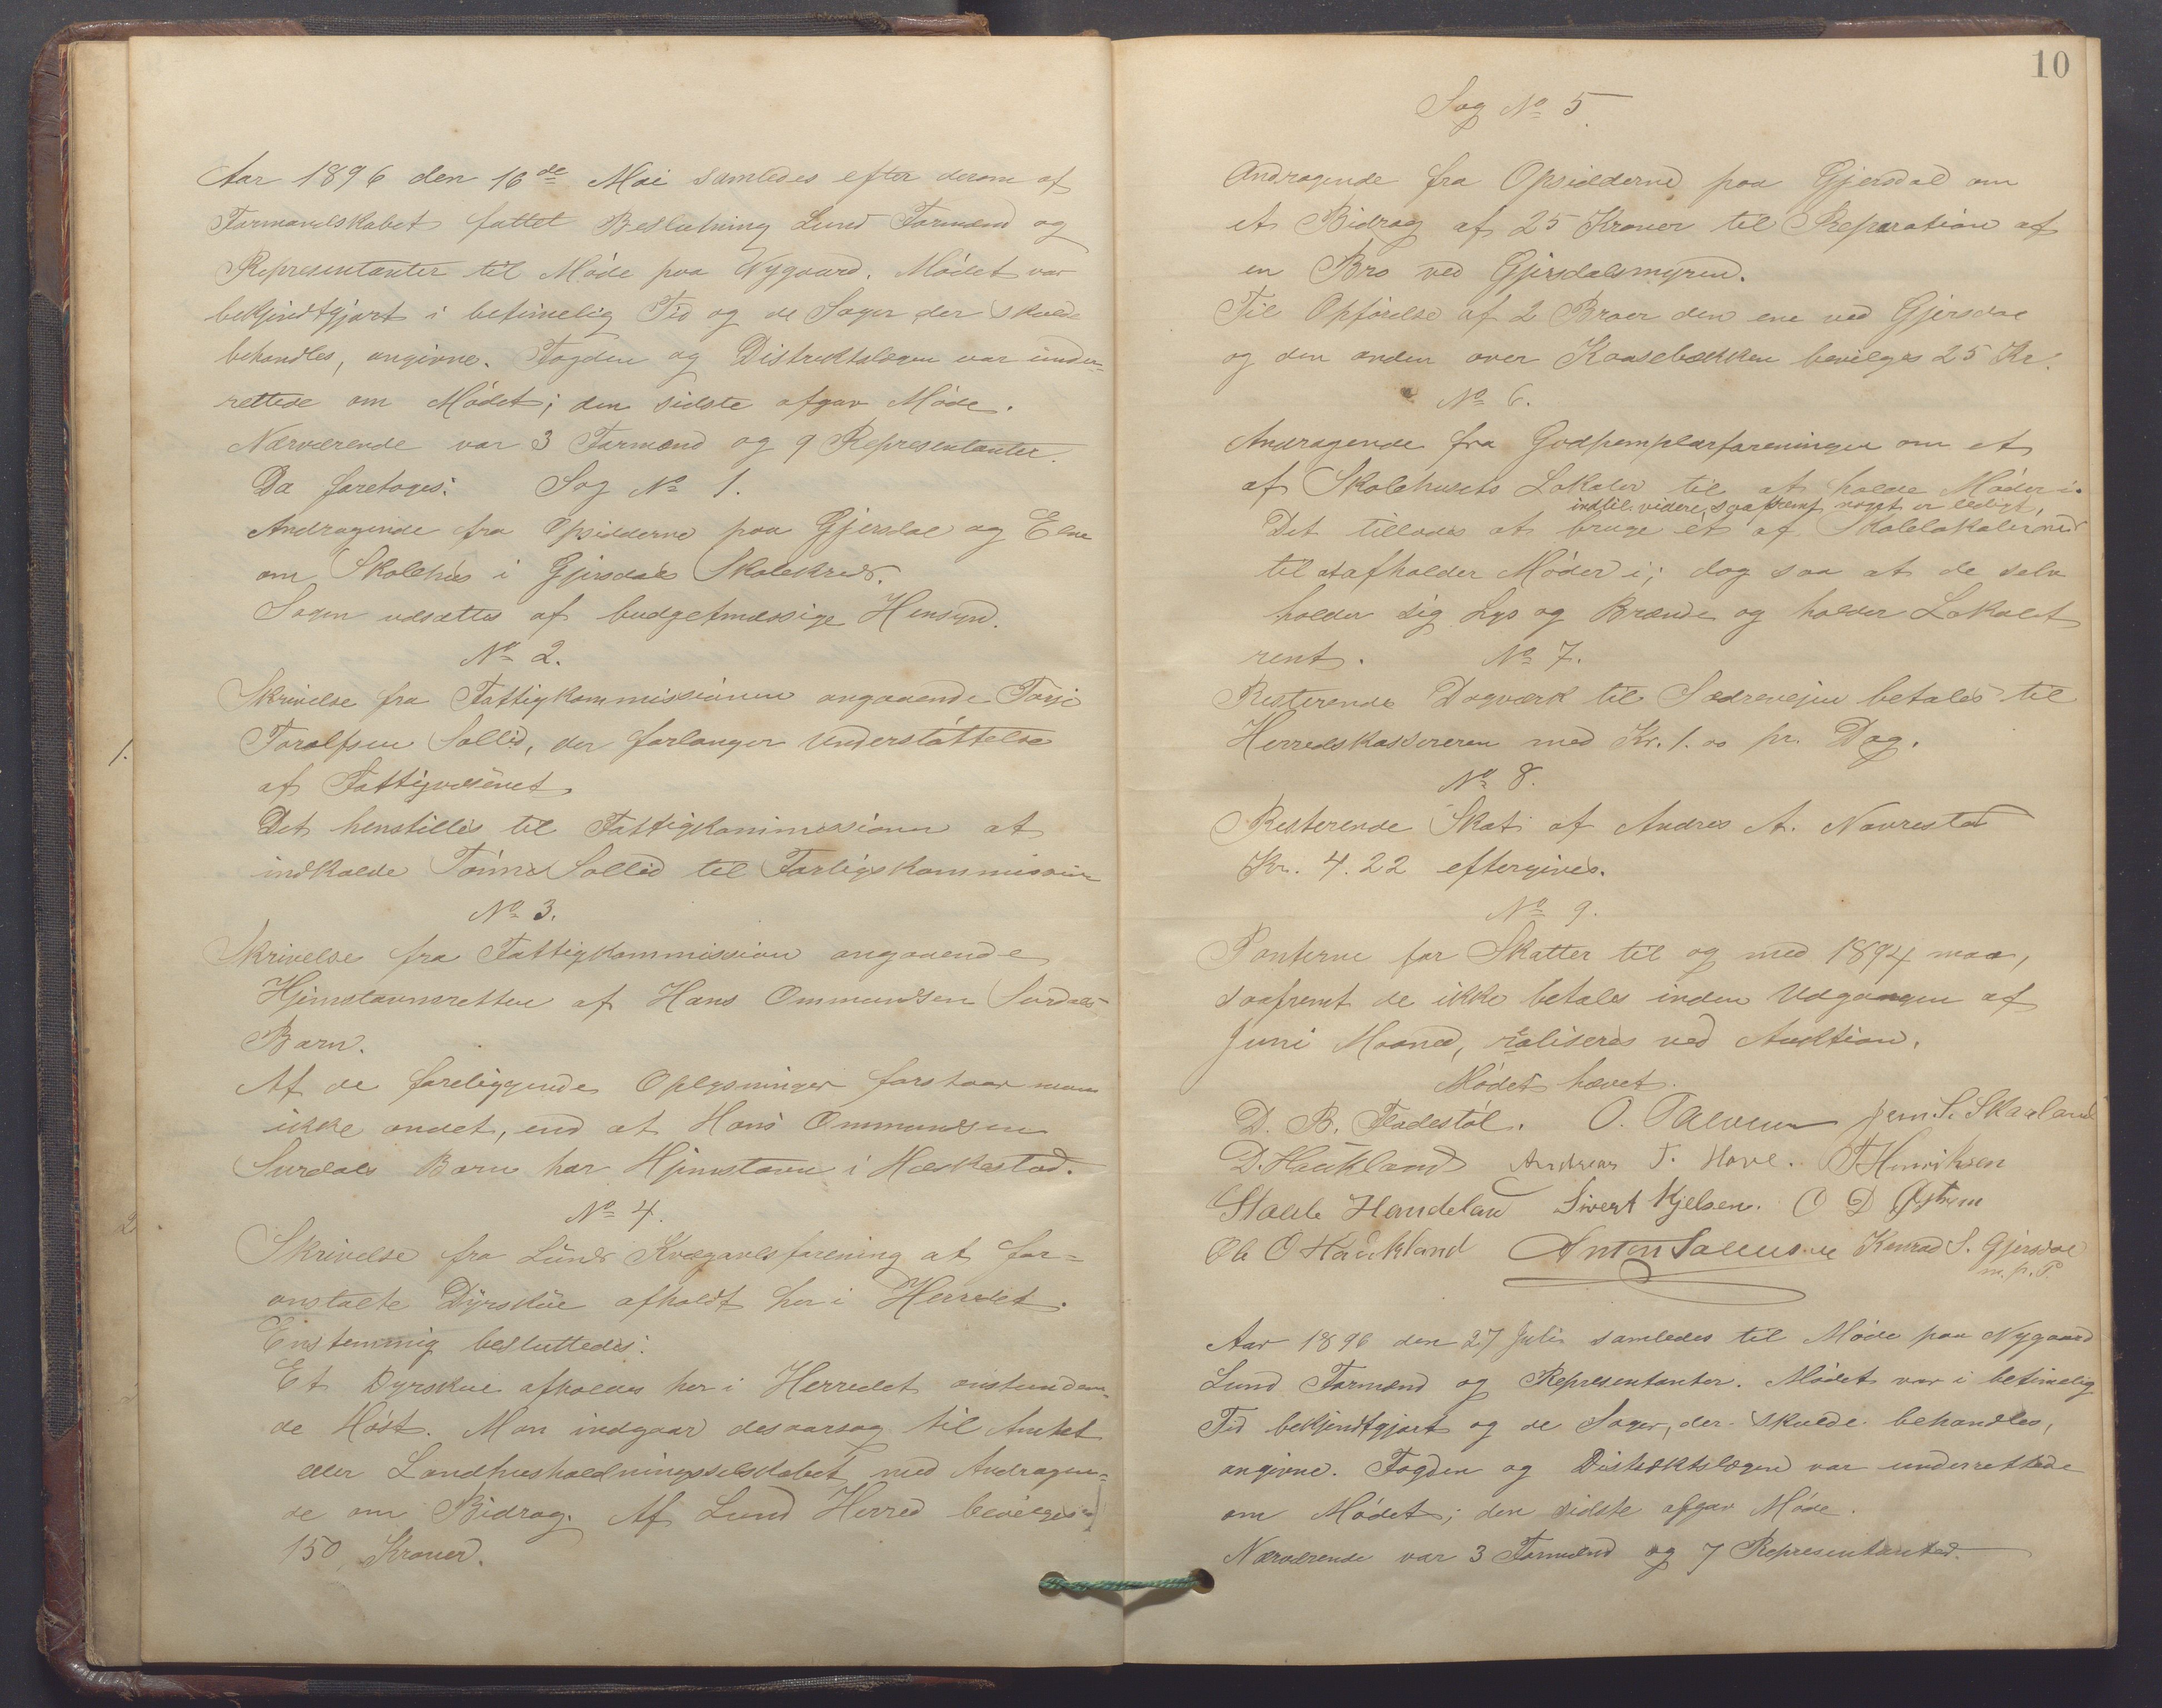 Aar 1896 den 16de Mai samledes efter derom af
Formandskabet fattet Beslutning Lund Formænd og
Representanter til Møde paa Nygaard. Mødet var
bekjendtgjort i betimelig Tid og de Sager der skulde
behandles, angivne. Fogden og Distriktslægen var under-
rettede om Mødet; den sidste afgav Møde.
Nærværende var 3 Formænd og 9 Representanter.
Da foretoges: Sag No 1.
Andragende fra Opsidderne paa Gjersdal og Elve
om Skolehus i Gjersdals Skolekreds.
Sagen udsættes af budgetmæssige Hensyn.
No 2.
Skrivelse fra Fattigkommissionen angaaende
Toralfsen Sollid, der forlanger Understøttelse
af Fattigvæsenet.
Det henstilles til Fattigkommissionen at
indkalde Sollid til Forligskommission
No 3.
Skrivelse fra Fattigkommission angaaende
Hjemstavnsretten af Hans Ommundsen Surdals
Barn.
Af de foreliggende Oplysninger forstaar man
ikke andet, end at Hans Ommundsen
Surdals Barn har Hjemstavn i Heskestad.
No 4.
Skrivelse fra Lunds Kvægavlsforening at for=
anstalte Dyrskue afholdt her i Herredet.
Enstemmig besluttedes:
Et Dyrskue afholdes her i Herredet anstunden-
de Høst. Man indgaar desaarsag til Amtet
eller Landhusholdningsselskabet med Andragen=
de om Bidrag. Af Lund Herred bevilges
150 Kroner.
1.
2
10
Sag No 5.
Andragende fra Opsidderne paa Gjersdal om
et Bidrag af 25 Kroner til Reparation af
en Bro ved Gjersdalsmyren.
Til Opførelse af 2 Broer den ene ved Gjersdal
og den anden over Kaasebækken bevilges 25 Kr.
No 6.
Andragende fra Godtemplarforeningen om et
af Skolehusets Lokaler til at holde Møder i.
indtil videre, saafremt noget er ledigt,
Det tillodes at bruge et af Skolelokalerne
til at afholder Møder i; dog saa at de selv
holder sig Lys og Brænde og holder Lokalet
rent. No 7.
Resterende Dagværk til Sædrevejen betales til
Herredskassereren med Kr. 1.00 pr. Dag.
No 8.
Resterende Skat af Andres A. Navrestad
Kr. 4.22 eftergives.
No 9.
Panterne for Skatter til og med 1894 maa,
saafremt de ikke betales inden Udgangen af
Juni Maaned, realiseres ved Auktion.
Mødet hævet.
D. B. Fladestøl. O. Jens S. Skaaland
D. Haukland Andreas T. Hove. Henriksen
Handeland Sivert Kjelsen. O D
Ole O Haukland Anton Salvesen Konrad S. Gjersdal
m. p. P.
Aar 1896 den 27 Juli samledes til Møde paa Nygaard
Lund Formænd og Representanter. Mødet var i betimelig
Tid bekjendtgjort og de Sager, der skulde behandles,
angivne. Fogden og Distriktslægen var underrettede
om Mødet; den sidste afgav Møde.
Nærværende var 3 Formænd og 7 Representanter.